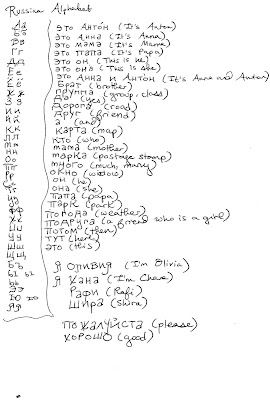 Russian Alphabet
Аа
Бб
Вв
Гг
Дд
Ее
Ёё
Жж
Зз
Ии
Йй
Кк
Лл
Мм
Нн
Оо
Пп
Рр
Сс
Тт
Уу
Фф
Хх
Цц
Чч
Шш
Щщ
Ээ
Юю
Яя
это Антон (It's Anton)
это Анна (It's Anna)
это мама (It's Mama)
это папа (It's Papa)
это он (This is he)
это она (This is she)
это Анна и Антон (It's Anna and Anton)
брат (brother)
группа (group, class)
Да (yes)
Дорога (road)
Друг (friend)
а (and)
карта (map)
кто (who)
мама (mother)
марка (postage stamp)
много (much, many)
окно (window)
он (he)
она (she)
папа (papa)
парк (park)
погода (weather)
подруга (a friend who is a girl)
потом (then)
тут (here)
это (this)
я Оливия (I'm Olivia)
я Хана (I'm Chava)
Рафи (Rafi)
Шира (Shira)
пожалуйста (please)
хорошо (good)